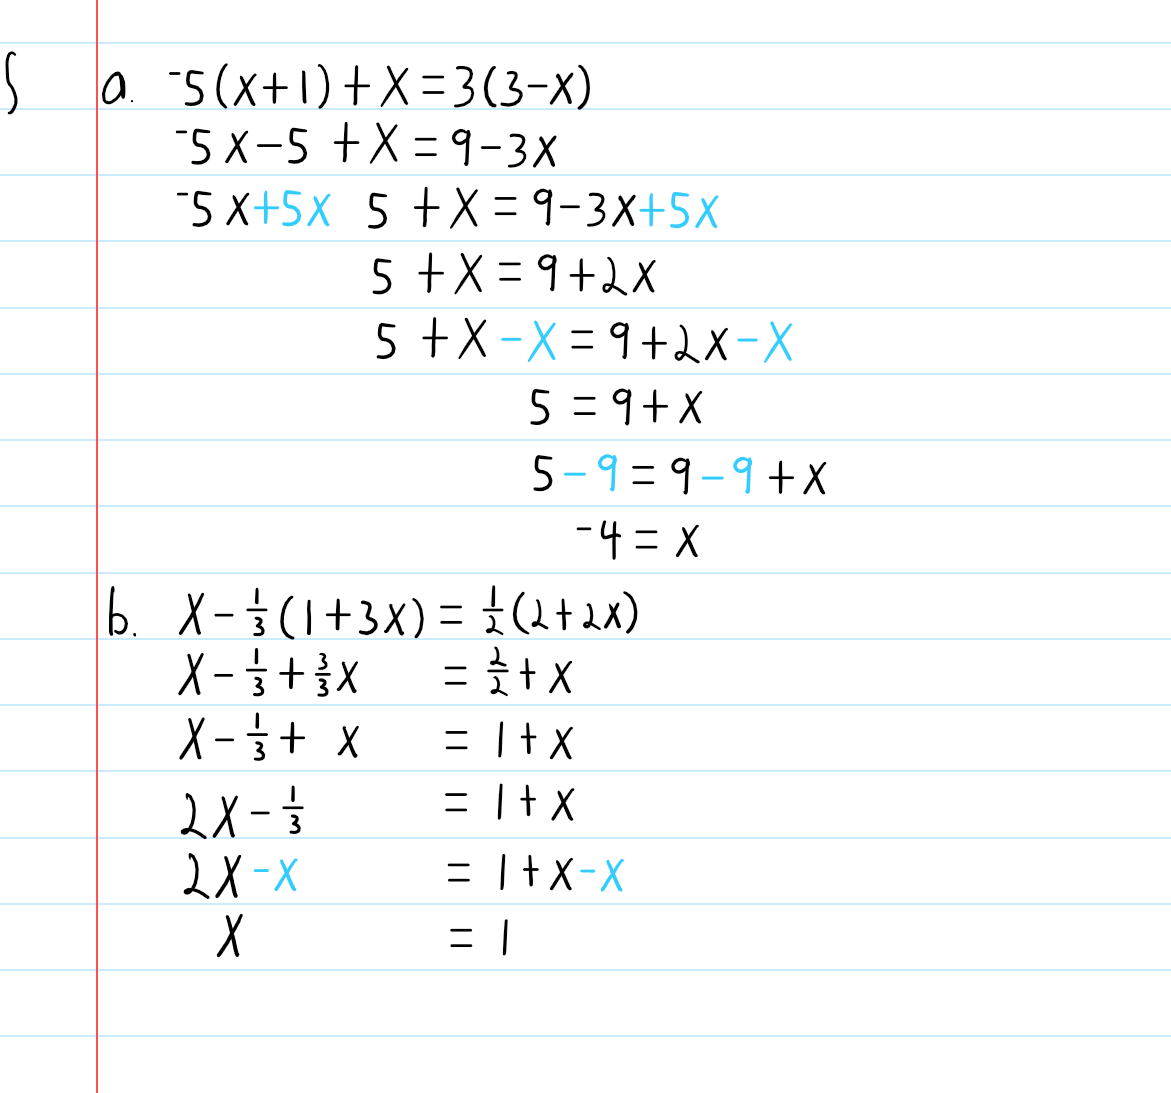 a. ⁻5(x+1)+X=3(3-x)
⁻5x-5 +X=9-3x
⁻5x+5x 5 +X=9-3x+5x
5 +X=9+2x
5 +X-X=9+2x-X
5 =9+x
5-9=9-9+x
⁻4=x
b. X-1/3(1+3x)=1/2(2+2x)
X-1/3+3/3x =2/2+x
X-1/3+ x =1+x
2X-1/3 =1+x
2X-x =1+x-x
X =1